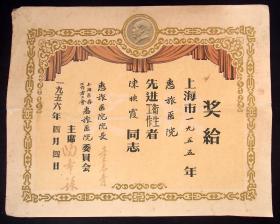 奖给
上海市一九五五年
惠旅医院
先进衛生工作者
同志
惠旅医院院長
惠旅医院委員会
主席
一九五六年四月四日